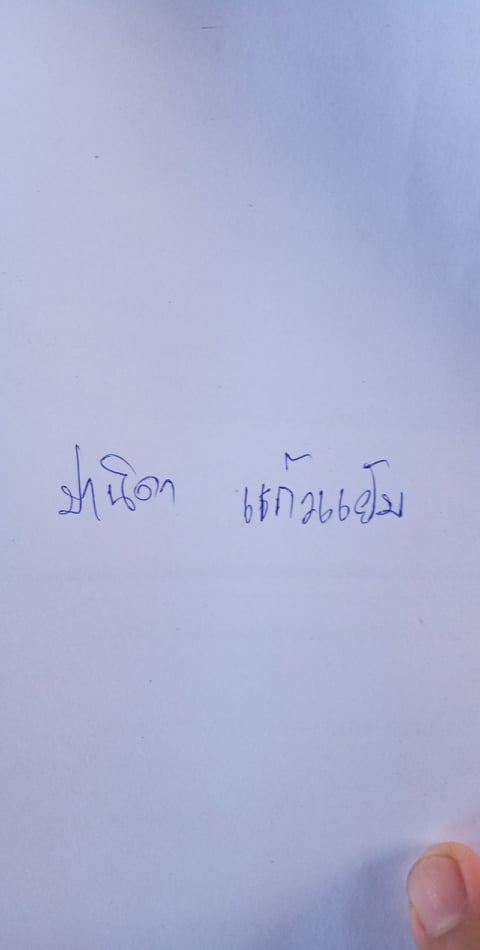 ปานิดา แก้วแย้ม